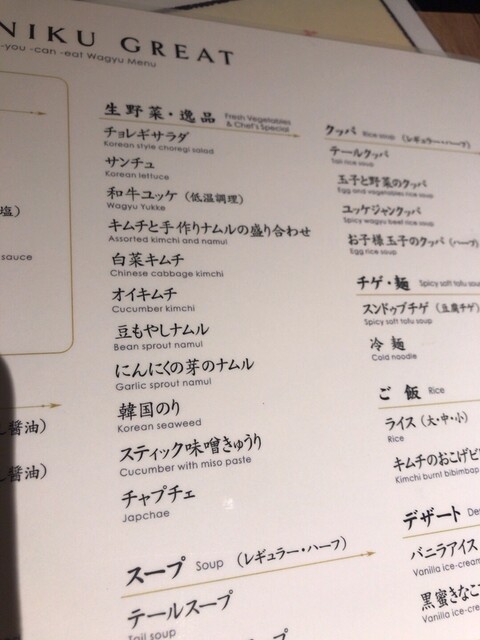 NIKU GREAT
-you -can -eat Wagyu Menu
塩)
sauce
醤油)
醤油)
生野菜・逸品 Fresh Vegetables & Chef's Special
チョレギサラダ
Korean style choregi salad
サンチュ
Korean lettuce
和牛ユッケ (低温調理)
Wagyu Yukke
キムチと手作りナムルの盛り合わせ
Assorted kimchi and namul
白菜キムチ
Chinese cabbage kimchi
オイキムチ
Cucumber kimchi
豆もやしナムル
Bean sprout namul
にんにくの芽のナムル
Garlic sprout namul
韓国のり
Korean seaweed
スティック味噌きゅうり
Cucumber with miso paste
チャプチェ
Japchae
スープ Soup (レギュラー・ハーフ)
テールスープ
Tail soup
クッパ Rice soup (レギュラー・ハーフ)
テールクッパ
Tail rice soup
玉子と野菜のクッパ
Egg and vegetables rice soup
ユッケジャンクッパ
Spicy wagyu beef rice soup
お子様玉子のクッパ (ハーフ)
Egg rice soup
チゲ・麺 Spicy soft tofu sou
スンドゥブチゲ (豆腐チゲ)
Spicy soft tofu soup
冷麺
Cold noodle
ご飯 Rice
ライス (大・中・小)
Rice
キムチのおこげビ
Kimchi burnt bibimbap
デザート De
バニラアイス
Vanilla ice-cream
黒蜜きなこ
Vanilla ice-cre